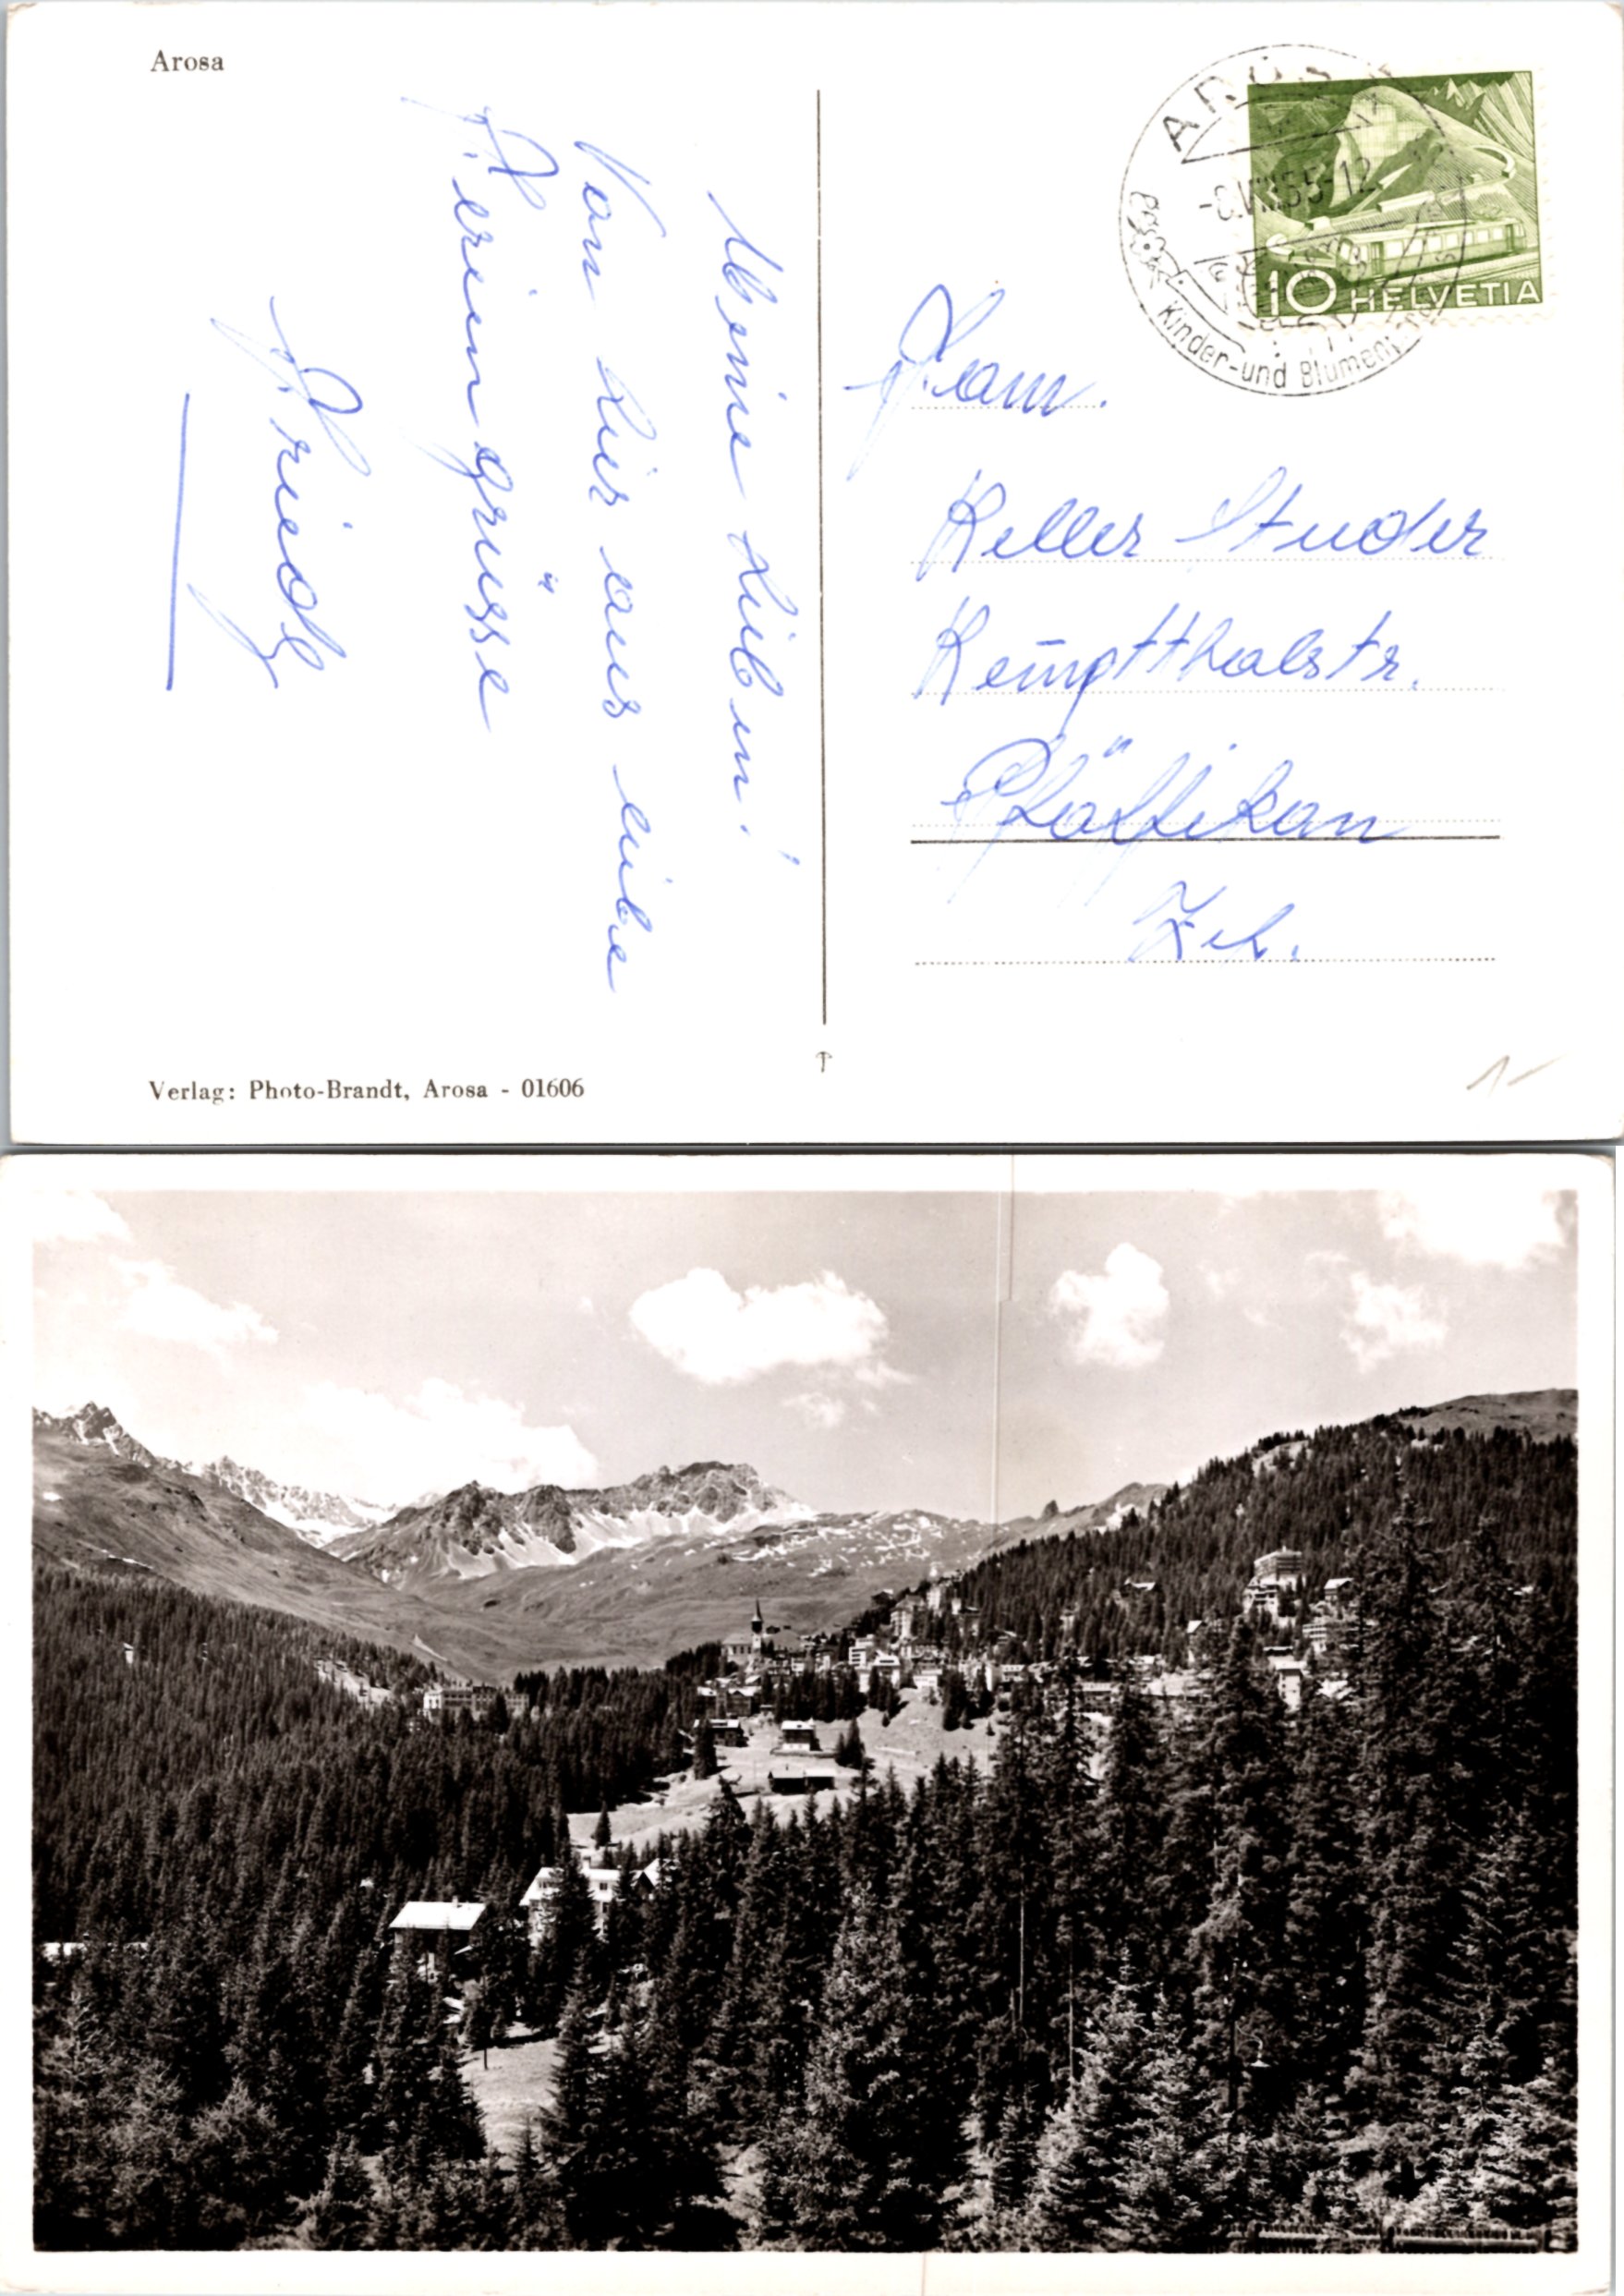 Arosa
Meine Lieben!
Von hier aus liebe
Feriengrüsse
Friedy
AROSA
-8.VIII.55-12
Kinder-und Blumen
10 HELVETIA
Fam.
Keller Studer
Kemptthalstr.
Pfäffikon
Zch.
Verlag: Photo-Brandt, Arosa - 01606
1-